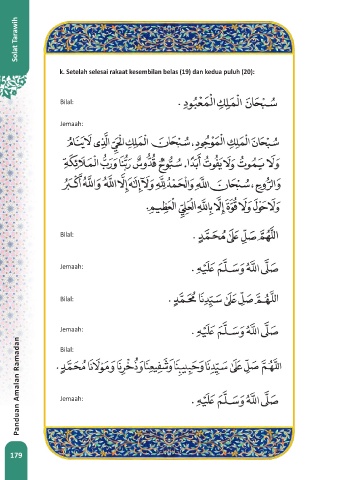 Solat Tarawih
k. Setelah selesai rakaat kesembilan belas (19) dan kedua puluh (20):
Bilal:
سُبْحَانَ الْمَلِكِ الْمَعْبُودِ .
Jemaah:
سُبْحَانَ الْمَلِكِ الْمَوْجُودِ، سُبْحَانَ الْمَلِكِ الْحَيِّ الَّذِى لَا يَنَامُ
وَلَا يَمُوتُ وَلَا يَفُوتُ أَبَدًا، سُبُّوحٌ قُدُّوسٌ رَبُّنَا وَرَبُّ الْمَلَائِكَةِ
وَالرُّوحِ، سُبْحَانَ اللَّهِ وَالْحَمْدُ لِلَّهِ وَلَا إِلَهَ إِلَّا اللَّهُ وَاللَّهُ أَكْبَرُ
وَلَا حَوْلَ وَلَا قُوَّةَ إِلَّا بِاللَّهِ الْعَلِيِّ الْعَظِيمِ.
Bilal:
اللَّهُمَّ صَلِّ عَلَى مُحَمَّدٍ .
Jemaah:
صَلَّى اللَّهُ وَسَلَّمَ عَلَيْهِ .
Bilal:
اللَّهُمَّ صَلِّ عَلَى سَيِّدِنَا مُحَمَّدٍ .
Jemaah:
صَلَّى اللَّهُ وَسَلَّمَ عَلَيْهِ .
Bilal:
اللَّهُمَّ صَلِّ عَلَى سَيِّدِنَا وَحَبِيبِنَا وَشَفِيعِنَا وَذُخْرِنَا وَمَوْلَانَا مُحَمَّدٍ .
Jemaah:
صَلَّى اللَّهُ وَسَلَّمَ عَلَيْهِ .
Panduan Amalan Ramadan
179